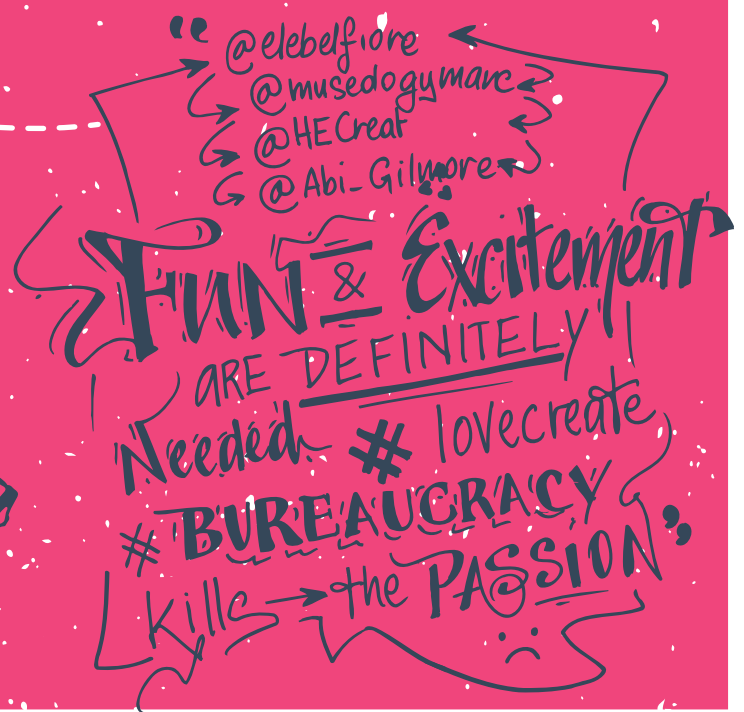 “ @elebelfiore
@musedogymarc
@HECreat
@Abi_Gilmore
Fun & Excitement
are DEFINITELY
Needed # lovecreate
# BUREAUCRACY
kills → the PASSION ”